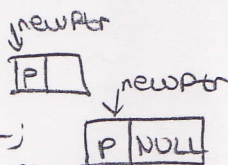 newPtr
P
newPtr
;
P NULL